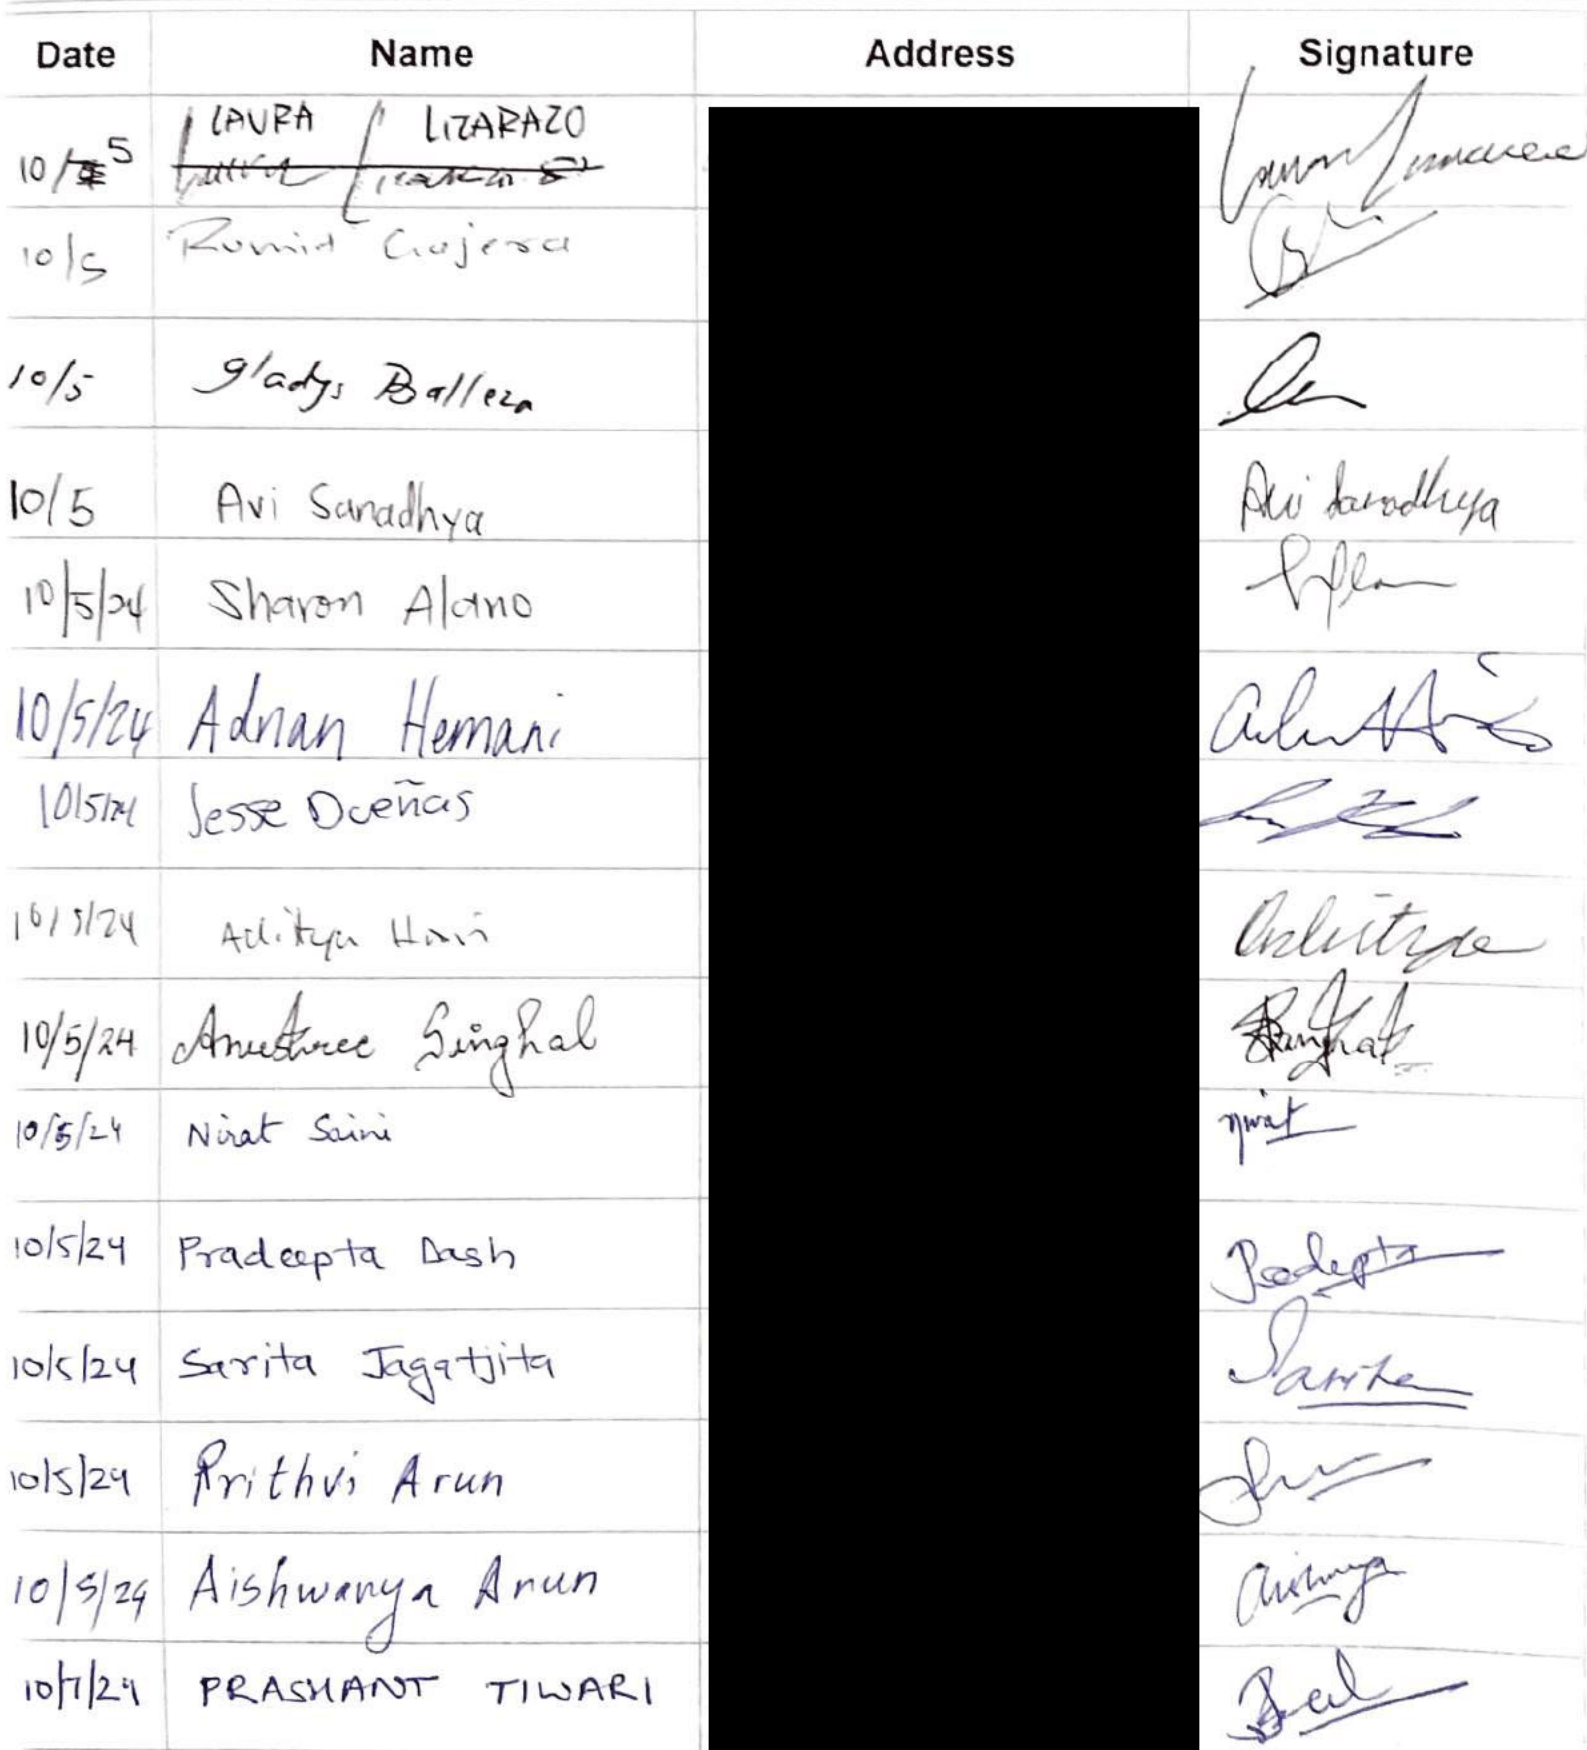 Date Name Address Signature
10/5 LAURA LIZARAZO
10/5 Romit Gajera
10/5 Gladys Balleza
10/5 Avi Sanadhya Avi Sanadhya
10/5/24 Sharon Alano
10/5/24 Adnan Hemani
10/5/24 Jesse Dueñas
10/5/24 Aditya Hari Aditya
10/5/24 Anushree Singhal Singhal
10/5/24 Nirat Saini Nirat
10/5/24 Pradeepta Dash Pradepta
10/5/24 Sarita Jagatjita Sarita
10/5/24 Prithvi Arun
10/5/24 Aishwarya Arun
10/7/24 PRASHANT TIWARI